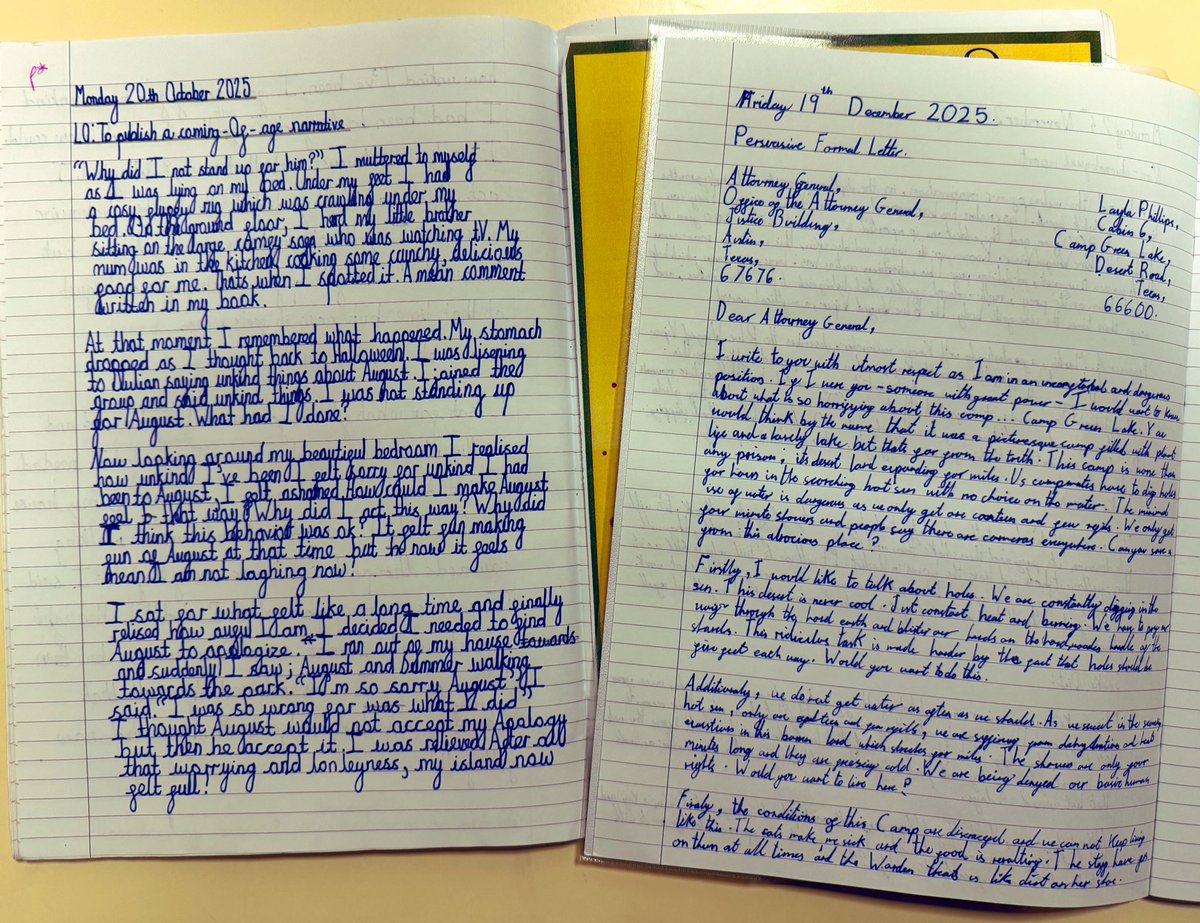 P*
Monday 20th October 2025
LO: To publish a coming-Of-age narrative.
"Why did I not stand up for him?" I muttered to myself
as I was lying on my bed. Under my feet I had
a cosy, fluffy rug which was crawling under my
bed. On the ground floor, I herd my little brother
sitting on the large, comey sofa who was watching tV. My
mum was in the kitchen cooking some crunchy, delicious
food for me. thats when I spotted it. A mean comment
written in my book.
At that moment, I remembered what happened. My stomach
dropped as I thought back to Halloween. I was lisening
to Julian saying unkind things about August. I joined the
group and said unkind things. I was not standing up
for August. What had I done?
Now looking around my beautiful bedroom I realised
how unkind I've been. I felt sorry for unkind I had
been to August, I felt ashamed. How could I make August
feel that way? Why did I act this way? Why did
I think this behaviour was ok? It felt fun making
fun of August at that time but now it feels
mean. I am not laghing now!
I sat for what felt like a long time and finally
relised how awful I am. I decided I needed to find
August to apologize. I ran out of my house towards
and suddenly I saw; August and Summer walking
towards the park. "I'm so sorry August," I
said. "I was so wrong for was what I did"
I thought August would not accept my Apology
but then he accept it. I was relieved. After all
that worrying and lonleyness, my island now
felt full!
Friday 19th December 2025.
Persuasive Formal Letter.
Attorney General,
Office of the Attorney General,
Justice Building,
Austin,
Texas,
67676.
Layla Phillips,
Cabin 6,
Camp Green Lake,
Desert Road,
Texas,
66600.
Dear Attorney General,
I write to you with utmost respect as I am in an uncomfortabel and dangerous
position. If I were you - someone with great power - I would want to know
about what is so horrifying about this camp... Camp Green Lake. You
would think by the name that it was a picturesque camp filled with plant
life and a lovely lake but thats far from the truth. This camp is worse then
any prison; its desert land expanding for miles. Us campmates have to dig holes
for hours in the scorching hot sun with no choice on the matter. The minimal
use of water is dangerous as we only get one canteen and few refils. We only get
four minute showers and people say there are cameras everywhere. Can you save us
from this atrocious place?
Firstly, I would like to talk about holes. We are constantly digging in the
sun. This desert is never cool. Just constant heat and burning. We have to
through the hard earth and blister our hands on the hard, wooden handle of the
shovels. This ridiculous task is made harder by the fact that holes should be
five feet each way. Would you want to do this.
Additionaly, we do not get water as often as we should. As we sweat in the
hot sun, only one and few refils, we are suffering from dehydration and heat
in this barren land which streches for miles. The showers are only four
minutes long and they are freezing cold. We are being denyed our basic human
rights. Would you want to live here?
Finaly, the conditions of this Camp are and we can not Keep living
like this. The cots make me sick and the food is revolting. The staff have
on them at all times and the Warden treats us like dirt on her shoe.